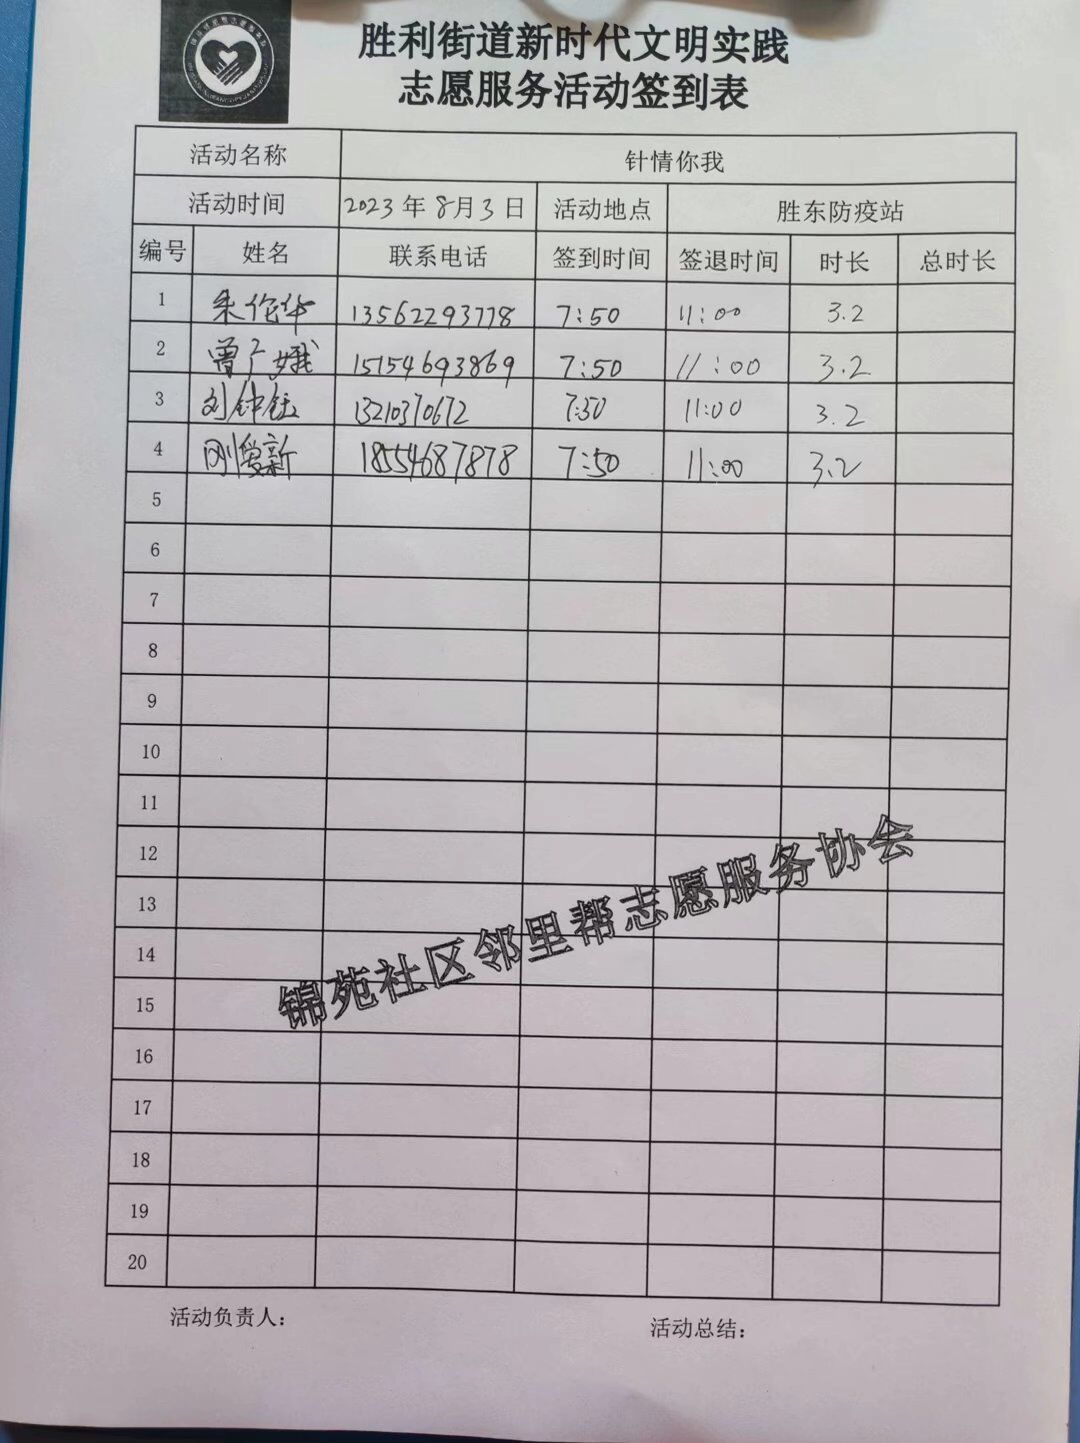 胜利街道新时代文明实践
志愿服务活动签到表
活动名称 针情你我
活动时间 2023年8月3日 活动地点 胜东防疫站
编号 姓名 联系电话 签到时间 签退时间 时长 总时长
1 朱伦华 13562293778 7:50 11:00 3.2
2 曾广娥 15154693869 7:50 11:00 3.2
3 刘钟钰 13210370672 7:50 11:00 3.2
4 刚爱新 18554687878 7:50 11:00 3.2
5
6
7
8
9
10
11
12
13
14
15
16
17
18
19
20
锦苑社区邻里帮志愿服务协会
活动负责人: 活动总结: